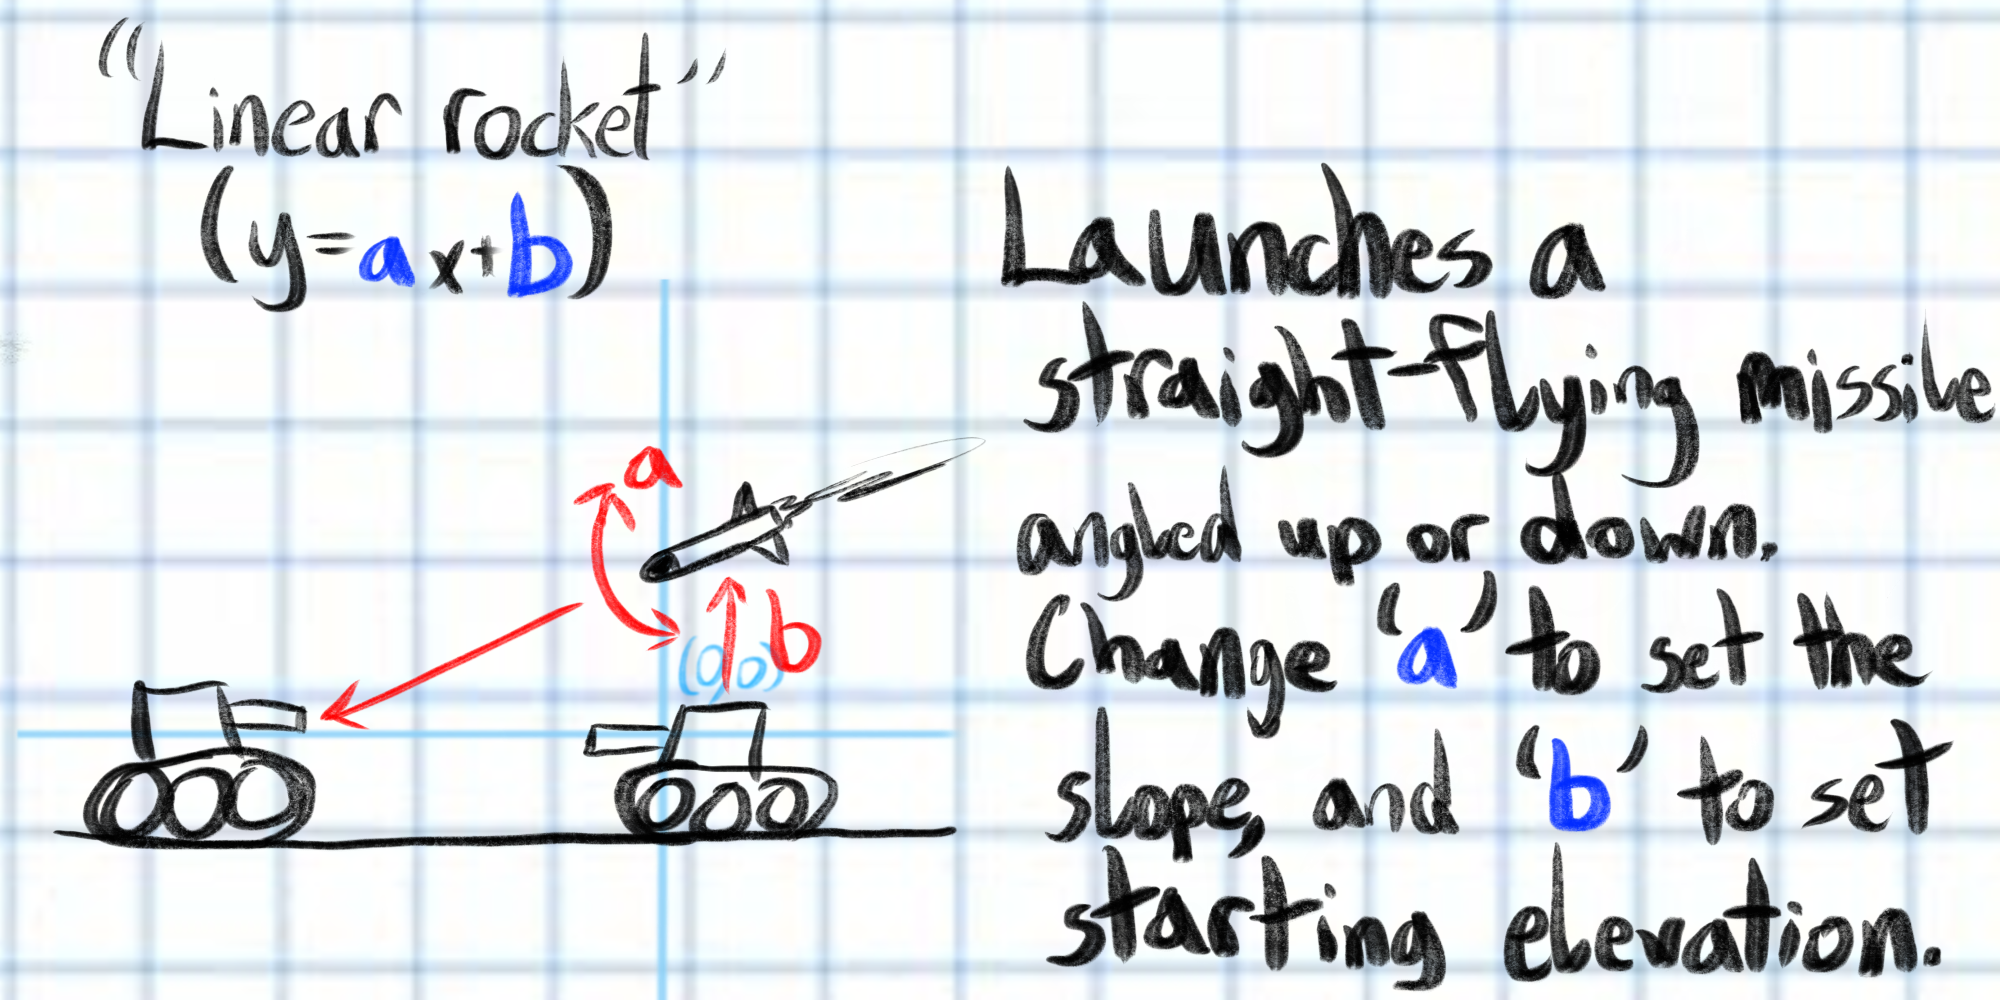 "Linear rocket"
(y=ax+b)
Launches a
straight-flying missile
angled up or down.
Change 'a' to set the
slope, and 'b' to set
starting elevation.
a
b
(0,0)